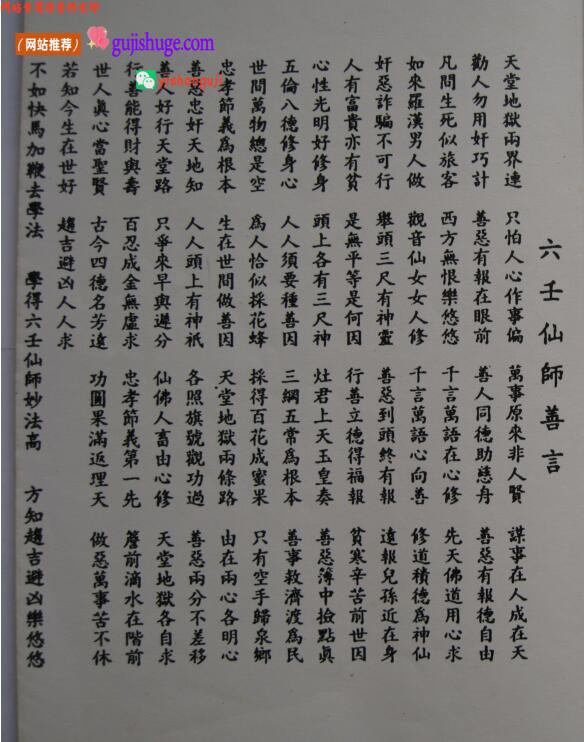 （网站推荐） gujishuge.com
yishenguji
六壬仙師善言
天堂地獄兩界連 只怕人心作事偏 萬事原來非人賢 謀事在人成在天
勸人勿用奸巧計 善惡有報在眼前 善人同德助慈舟 善惡有報德自由
凡問生死似旅客 西方無恨樂悠悠 千言萬語在心修 先天佛道用心求
如來羅漢男人做 觀音仙女女人修 千言萬語心向善 修道積德為神仙
奸惡詐騙不可行 舉頭三尺有神靈 善惡到頭終有報 遠報兒孫近在身
人有富貴亦有貧 是無平等是何因 行善立德得福報 貧寒辛苦前世因
心性光明好修身 頭上各有三尺神 灶君上天玉皇奏 善惡簿中撿點真
五倫八德修身心 人人須要種善因 三綱五常為根本 善事救濟渡為民
世間萬物總是空 為人恰似採花蜂 採得百花成蜜果 只有空手歸泉鄉
忠孝節義為根本 生在世間做善因 天堂地獄兩條路 由在兩心各明心
善惡忠奸天地知 人人頭上有神祇 各照旗號觀功過 善惡兩分不差移
善好行天堂路 只爭來早與遲分 仙佛人畜由心修 天堂地獄各自求
行善能得財與壽 百忍成金無虛求 忠孝節義第一先 簷前滴水在階前
世人真心當聖賢 古今四德名芳遠 功圓果滿返理天 做惡萬事苦不休
若知今生在世好 趨吉避凶人人求
不如快馬加鞭去學法 學得六壬仙師妙法高 方知趨吉避凶樂悠悠